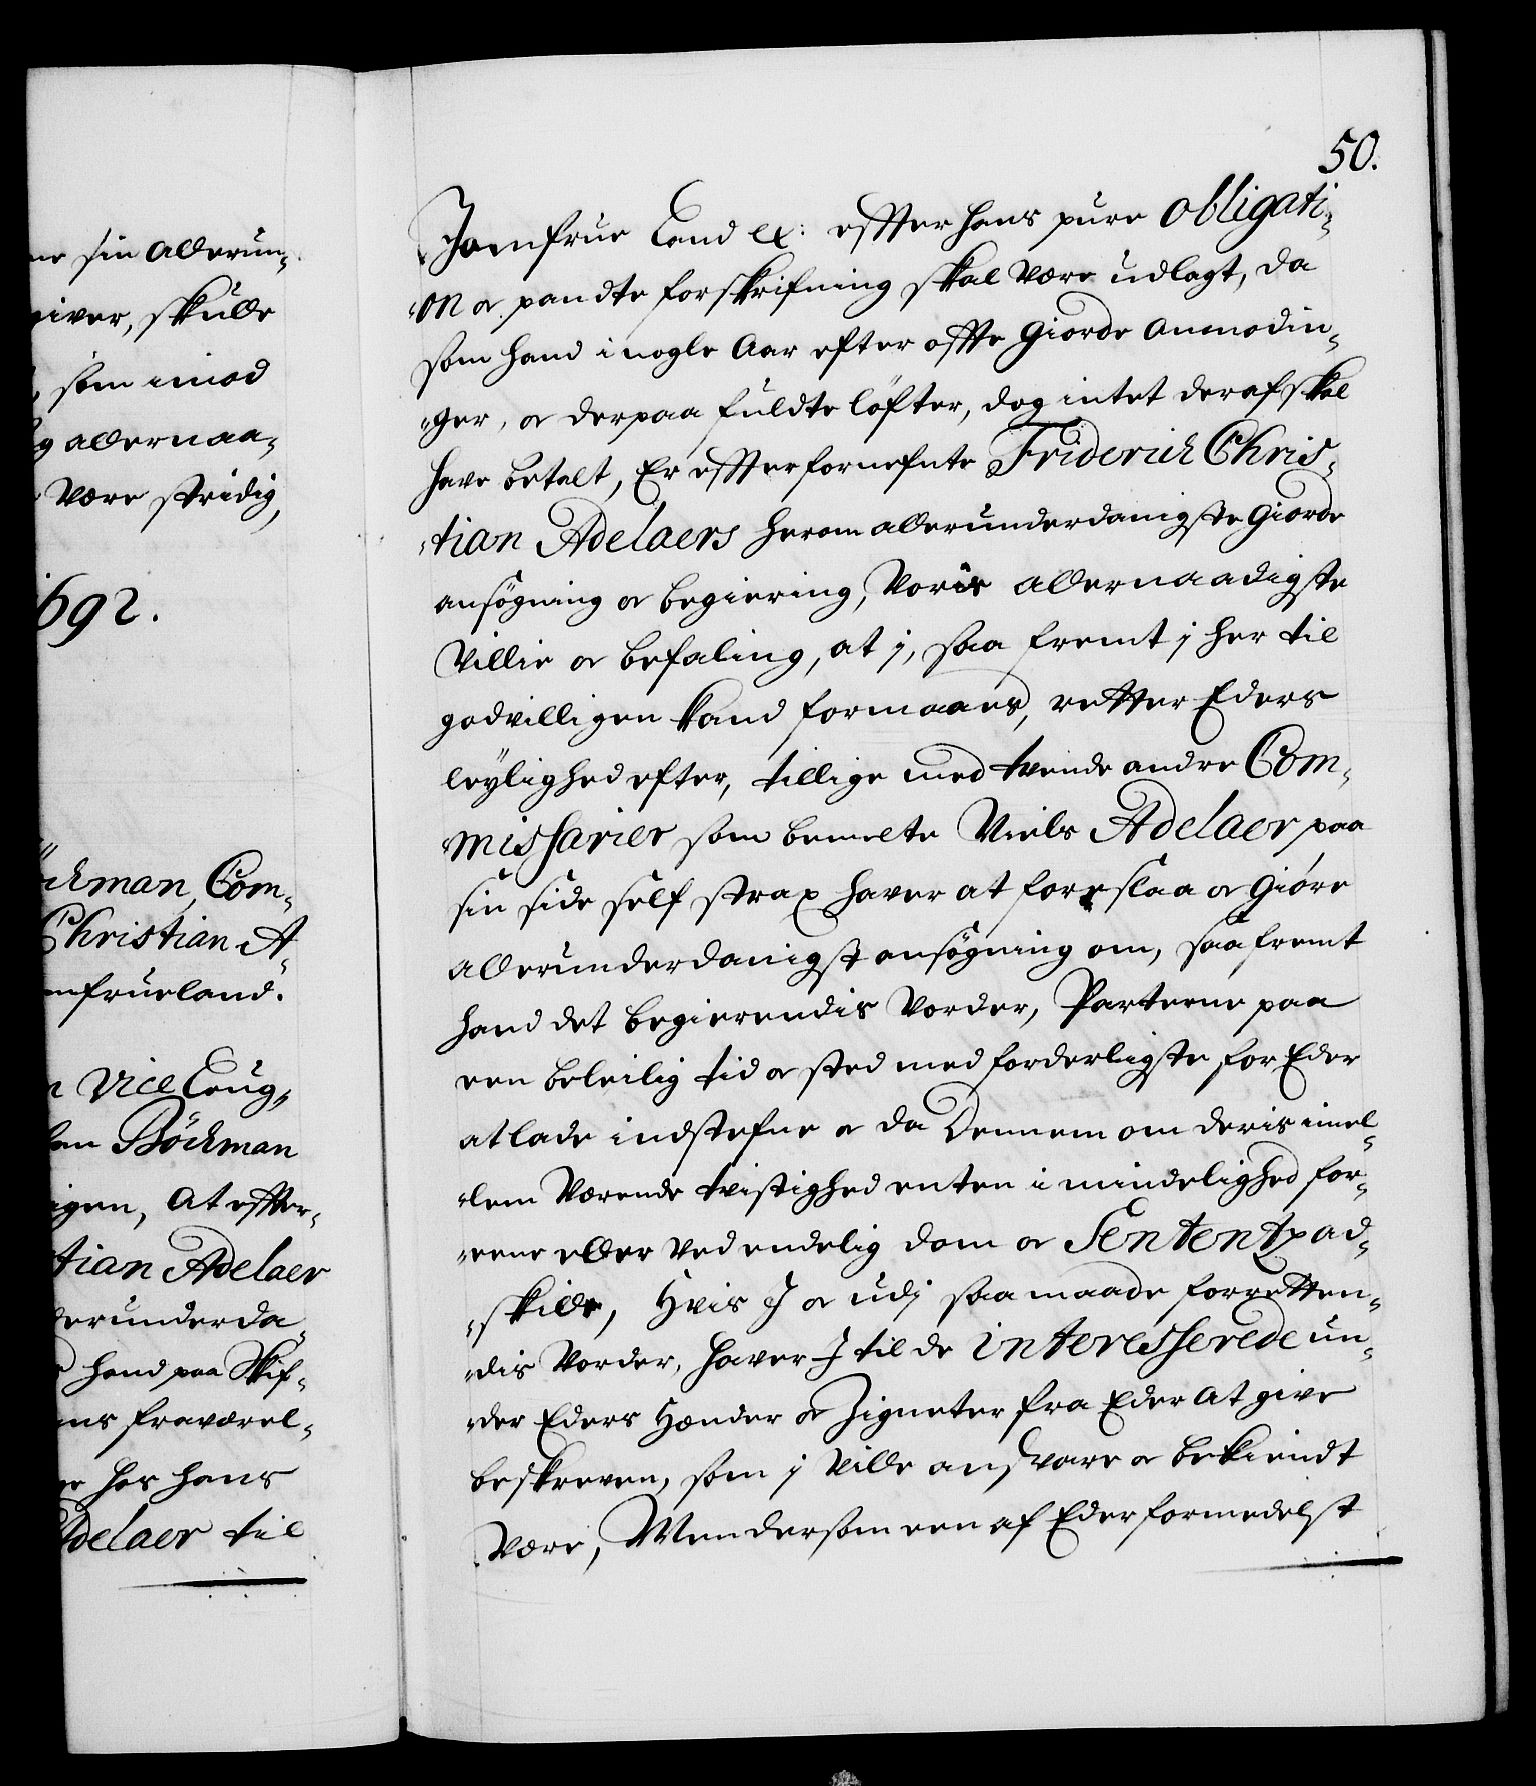 ne sin allerun-
giver, skulle
, som imod
g allernaa-
være stridig,
1692.
öckman, Com-
Christian A-
mfrueland.
n Vice Laug-
en Böckman
igen, at effter-
tian Adelaer
lerunderda-
hand paa Skif-
ns fraværel-
e hos hans
Adelaer til
50.
Jomfrue Land etc: effter hans pure obligati-
on oc pandte forskrifning skal være udlagt, da
som hand i nogle Aar efter offte giorde anmodin-
ger, oc derpaa fuldte löfter, dog intet deraf skal
have betalt, Er effter forneffnte Friderich Chris-
tian Adelaers herom allerunderdanigste giorde
ansögning oc begiering, Voris allernaadigste
Villie oc befaling, at j, saa fremt j her til
godvilligen kand formaaes, retter Eders
leylighed efter, tillige med tvende andre Com-
missarier som bemelte Niels Adelaer paa
sin side self strax haver at foreslaa oc giöre
allerunderdanigst ansögning om, saafremt
hand det begierendis vorder, Parterne paa
een beleilig tid oc sted med forderligste for Eder
at lade indstefne oc da Dennem om deris imel-
lem værende tvistighed enten i mindelighed for-
eene eller ved endelig dom oc Sententz ad-
skille, Hvis J oc udj saa maade forretten-
dis vorder, haver J til de interesserede un-
der Eders Hænder oc Zigneter fra Eder at give
beskreven, som j ville andsvare oc bekiendt
være, Men dersom een af Eder formedelst